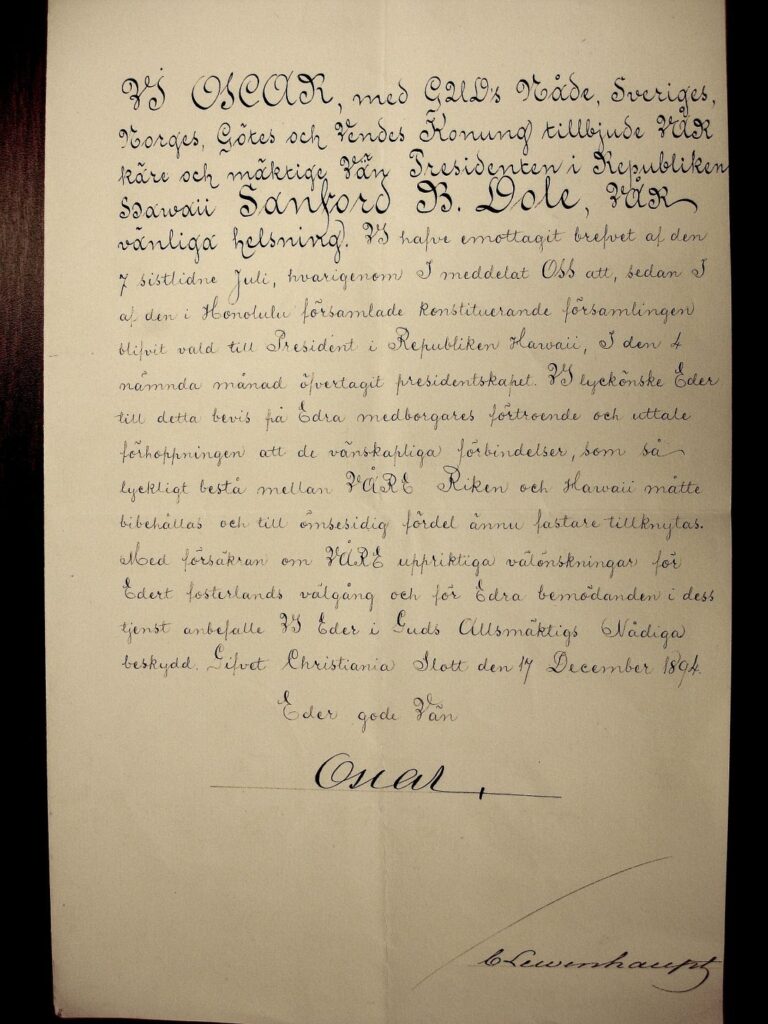 VI OSCAR, med GUDs Nåde, Sveriges,
Norges, Götes och Vendes Konung tillbjude VÅR
käre och mäktige Vän Presidenten i Republiken
Hawaii Sanford B. Dole, VÅR
vänliga helsning. VI hafve emottagit brefvet af den
7 sistlidne Juli, hvarigenom I meddelat OSS att, sedan I
af den i Honolulu församlade konstituerande församlingen
blifvit vald till President i Republiken Hawaii, I den 4
nämnda månad öfvertagit presidentskapet. VI lyckönske Eder
till detta bevis på Edra medborgares förtroende och uttale
förhoppningen att de vänskapliga förbindelser, som så
lyckligt bestå mellan VÅRE Riken och Hawaii måtte
bibehållas och till ömsesidig fördel ännu fastare tillknytas.
Med försäkran om VÅRE uppriktiga välönskningar för
Edert fosterlands välgång och för Edra bemödanden i dess
tjenst anbefalle VI Eder i Guds Allsmäktigs Nådiga
beskydd. Gifvet Christiania Slott den 17 December 1894.
Eder gode Vän
Oscar,
C Lewenhaupt